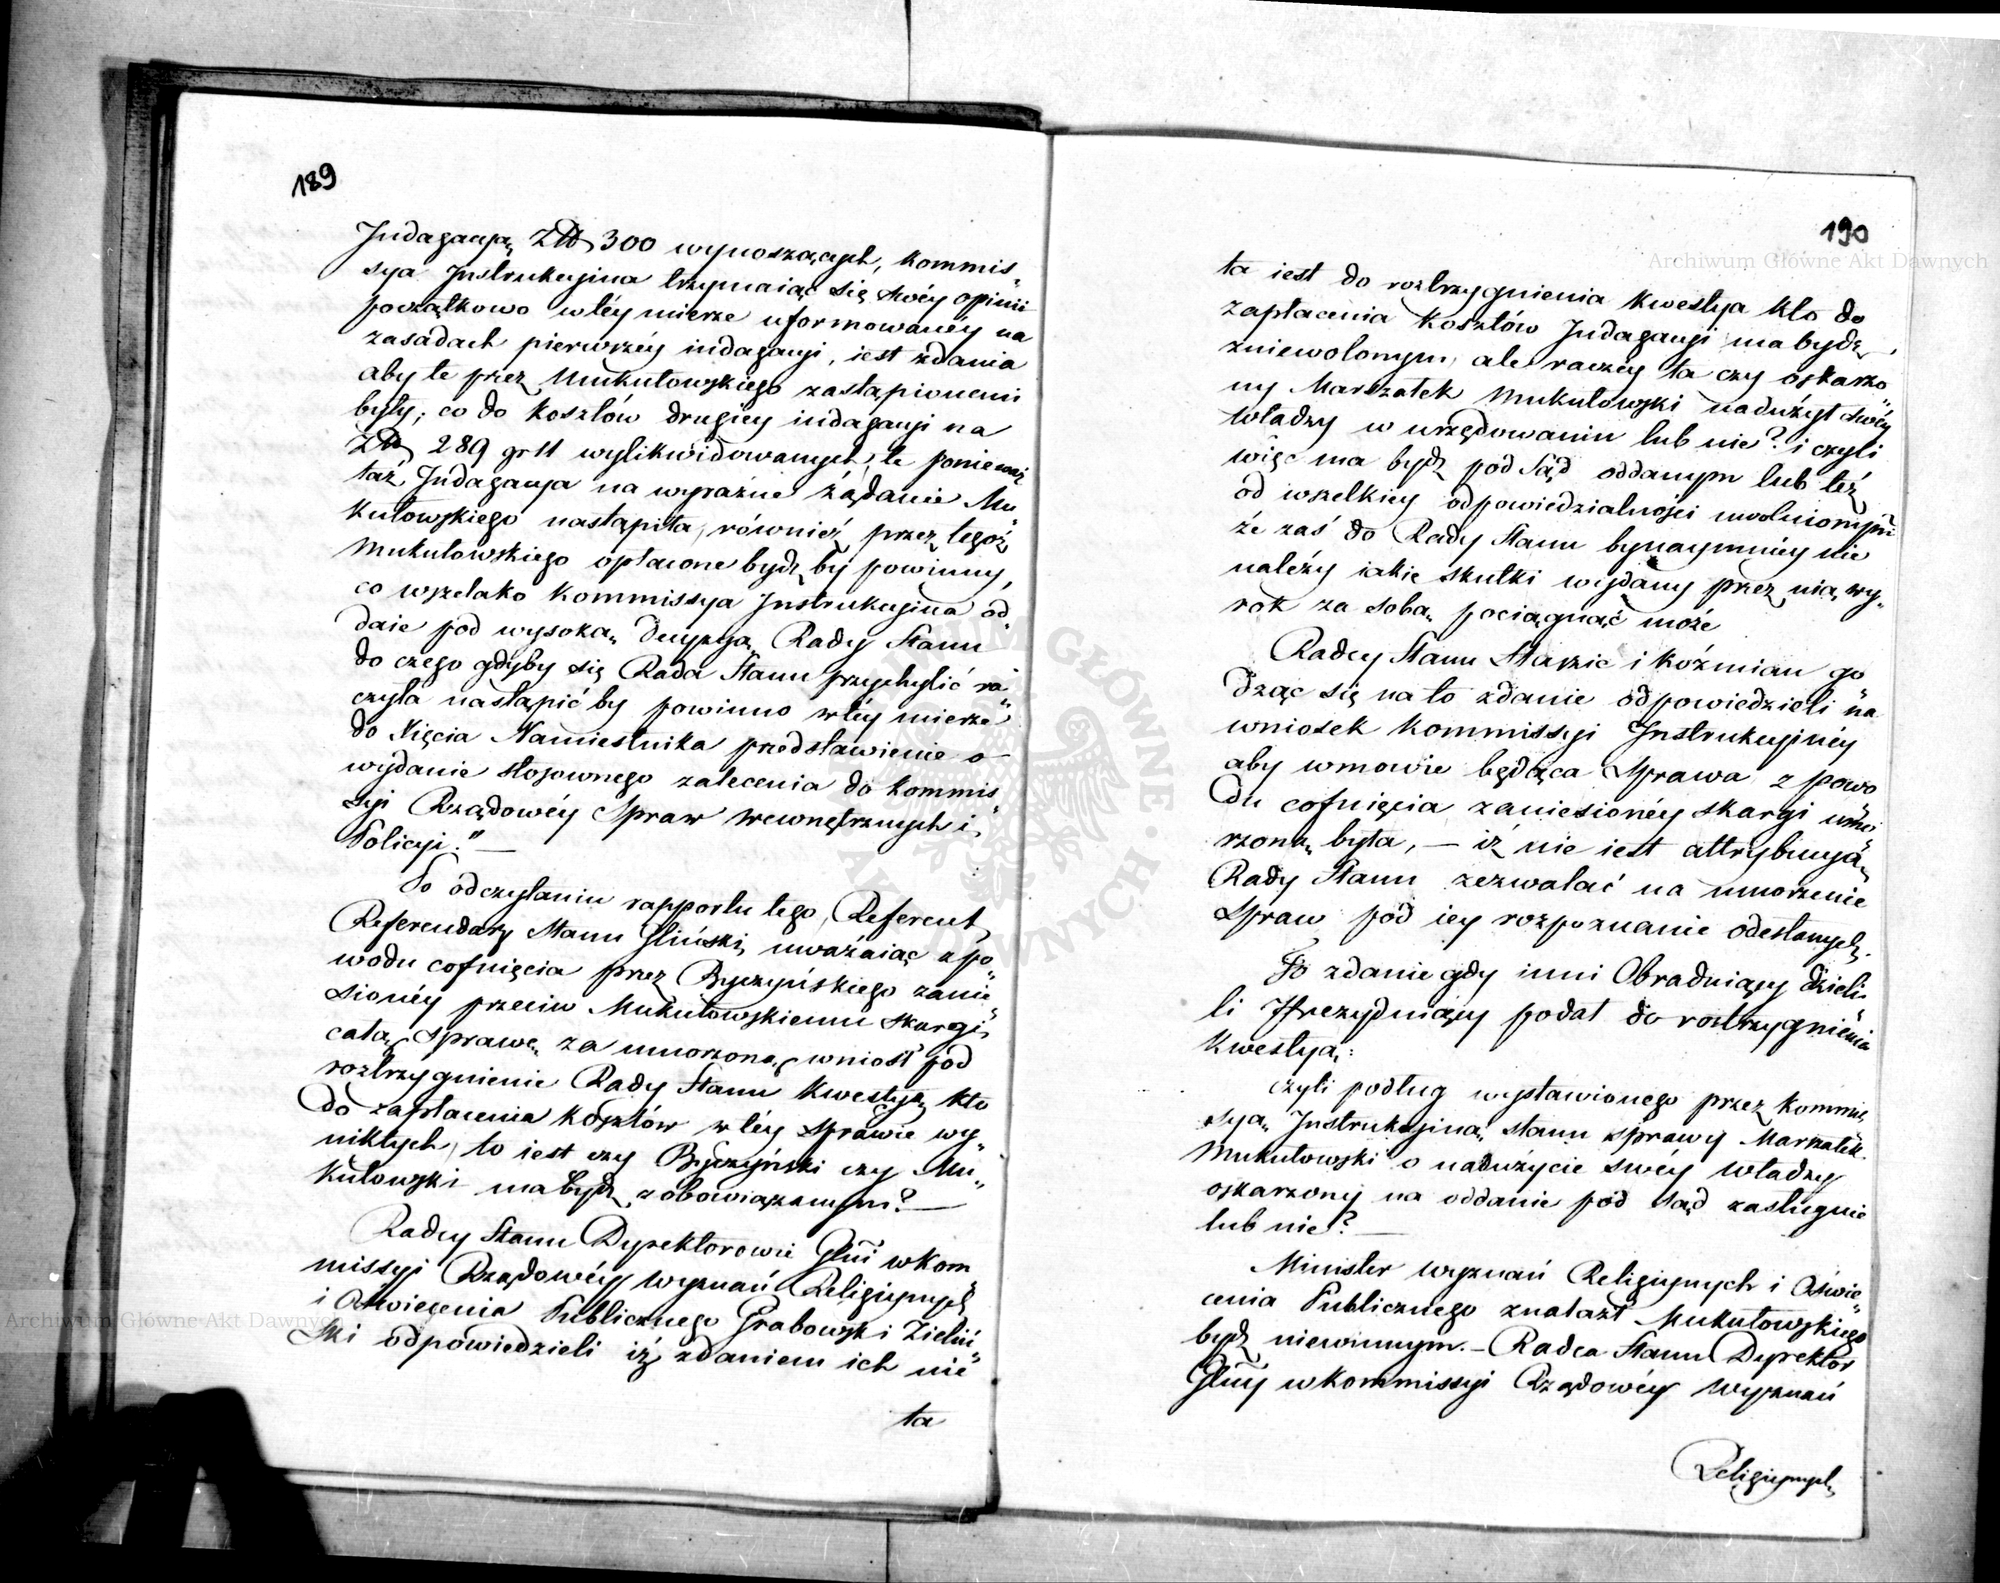 189
Indagacyą Złt 300 wynoszących, Kommis„
sya Instrukcyina trzymaiąc się swéy opinii
początkowo wtéy mierze uformowanéy na
zasadach pierwszéy indagacyi, iest zdania
aby te przez Mukułowskiego zastąpionemi
były; co do kosztów drugiey indagacyi na
Złt 289 gr 11 wylikwidowanych, te ponieważ
taż Indagacya na wyraźne żądanie Mu„
kułowskiego nastąpiła, również przez tegoż
Mukułowskiego opłacone bydź by powinny,
co wszelako Kommissya Instrukcyina od„
daie pod wysoką Decyzyą Rady Stanu
do czego gdyby się Rada Stanu przychylić ra„
czyła nastąpić by powinno wtéy mierze
do Xięcia Namiestnika przedstawienie o
wydanie stosownego zalecenia do Kommis„
syi Rządowéy Spraw Wewnętrznych i
Policyi." —
Po odczytaniu rapportu tego, Referent
Referendarz Stanu Gliński, uważaiąc z po„
wodu cofnięcia przez Byczyńskiego zanie„
sionéy przeciw Mukułowskiemu skargi,
całą Sprawę za umorzoną, wniosł pod
roztrzygnienie Rady Stanu Kwestyą, kto
do zapłacenia kosztów w téy Sprawie wy„
nikłych, to iest czy Byczyński czy Mu„
kułowski ma bydź zobowiązanym? —
Radcy Stanu Dyrektorowie Głni w Kom
missyi Rządowéy Wyznań Religiynych
i Oświecenia Publicznego Grabowski Zieliń„
ski odpowiedzieli iż zdaniem ich nie
ta
190
ta iest do roztrzygnienia Kwestya kto do
zapłacenia kosztów Indagacyi ma bydź
zniewolonym, ale raczéy ta czy oskarzo„
ny Marszałek Mukułowski nadużył swéy
władzy w urzędowaniu lub nie? i czyli
więc ma bydź pod Sąd oddanym lub też
od wszelkiey odpowiedzialności uwolnionym
że zaś do Rady Stanu bynaymniéy nie
należy iakie skutki wydany przez nią wy„
rok za sobą pociągnąć może
Radcy Stanu Staszic i Koźmian go
dząc się na to zdanie odpowiedzieli na
wniosek Kommissyi Instrukcyinéy
aby wmowie będąca Sprawa z powo„
du cofnięcia zaniesionéy skargi umo„
rzoną była, — iż nie iest attrybucyą
Rady Stanu zezwalać na umorzenie
Spraw pod iey rozpoznanie odesłanych.
To zdanie gdy inni Obraduiący dzieli„
li Prezyduiący podał do roztrzygnienia
Kwestyą:
czyli podług wystawionego przez Kommis„
syą Instrukcyiną stanu sprawy Marszałek
Mukułowski o nadużycie swéy władzy
oskarzony na oddanie pod Sąd zasługuie
lub nie? —
Minister Wyznań Religiynych i Oświe„
cenia Publicznego znalazł Mukułowskiego
bydź niewinnym. — Radca Stanu Dyrektor
Głny w Kommissyi Rządowéy Wyznań
Religiynych
Archiwum Główne Akt Dawnych
Archiwum Główne Akt Dawnych